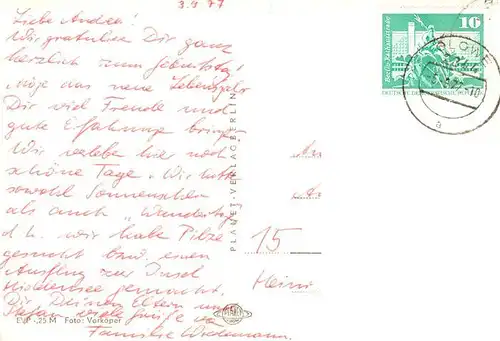 3.9.77
Liebe Andrea!
Wir gratulieren Dir ganz
herzlich zum Geburtstag!
Möge das neue Lebensjahr
Dir viel Freude und
gute Erfahrung bringen.
Wir verleben hier noch
schöne Tage. Wir hatten
sowohl Sonnenschein
als auch „Wandertag"
d.h. wir habe Pilze
gesucht bzw. einen
Ausflug zur Insel
Hiddensee gemacht.
Dir Deinen Eltern und
Stefan viele Grüße
Familie Wiedemann.
EVP -,25 M Foto: Verkoper
PLANET-VERLAG BERLIN
16
Berlin, Rathausstraße
LOWE
a
15
Heini